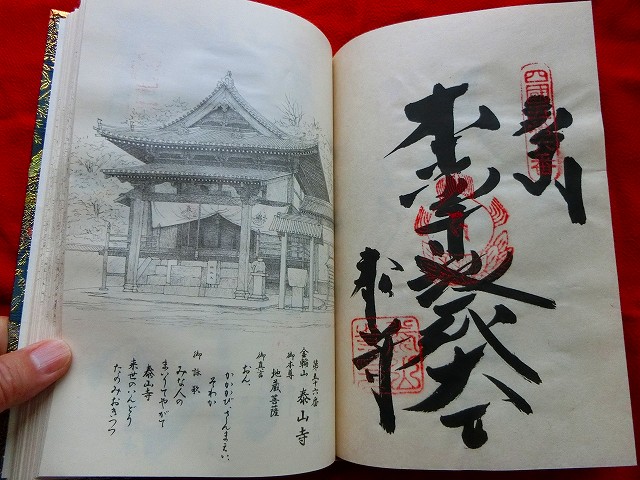 本尊地蔵大士
泰山寺
第五十六番
金輪山 泰山寺
御本尊
地蔵菩薩
御真言
おん、
かかかびさんまえい
そわか
御詠歌
みな人の
まいりてやがて
泰山寺
来世のいんどう
たのみおきつつ